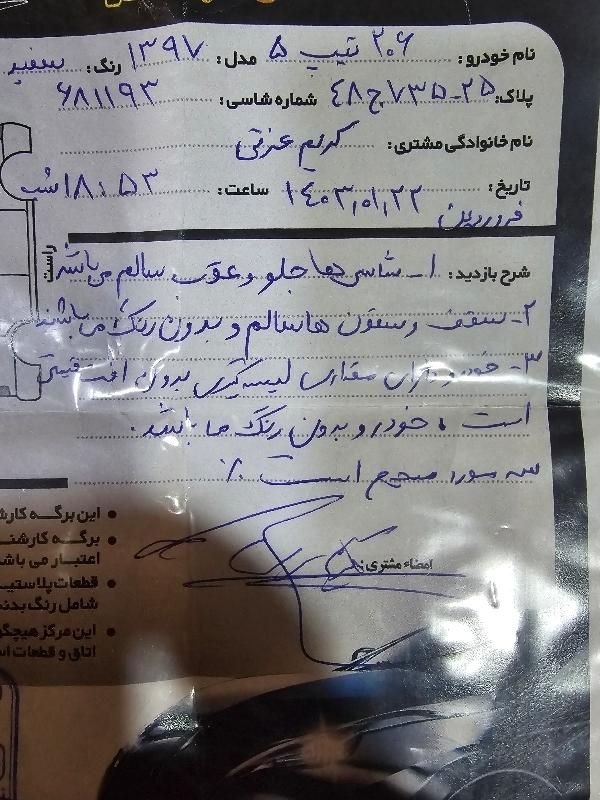 نام خودرو: ۲۰۶ تیپ ۵ مدل: ۱۳۹۷ رنگ: سفید
پلاک: ۲۵-۷۳۵ج۴۸ شماره شاسی: ۶۸۱۱۹۳
نام خانوادگی مشتری: کریم عزتی
تاریخ: ۱۴۰۳,۰۱,۲۲ ساعت: ۱۸:۵۳ شب
فروردین
راست
شرح بازدید: ۱- شاسی ها جلو و عقب سالم می باشد
۲- سقف و ستون ها سالم و بدون رنگ می باشند
۳- خودرو دارای مقداری لیسه گیری بدون افت قیمتی
است، خودرو بدون رنگ می باشد.
سه مورد صحیح است ٪
امضاء مشتری:
این برگه کارش
برگه کارشنا
اعتبار می باش
قطعات پلاستیـ
شامل رنگ بدنـ
این مرکز هیچگو
اتاق و قطعات اس